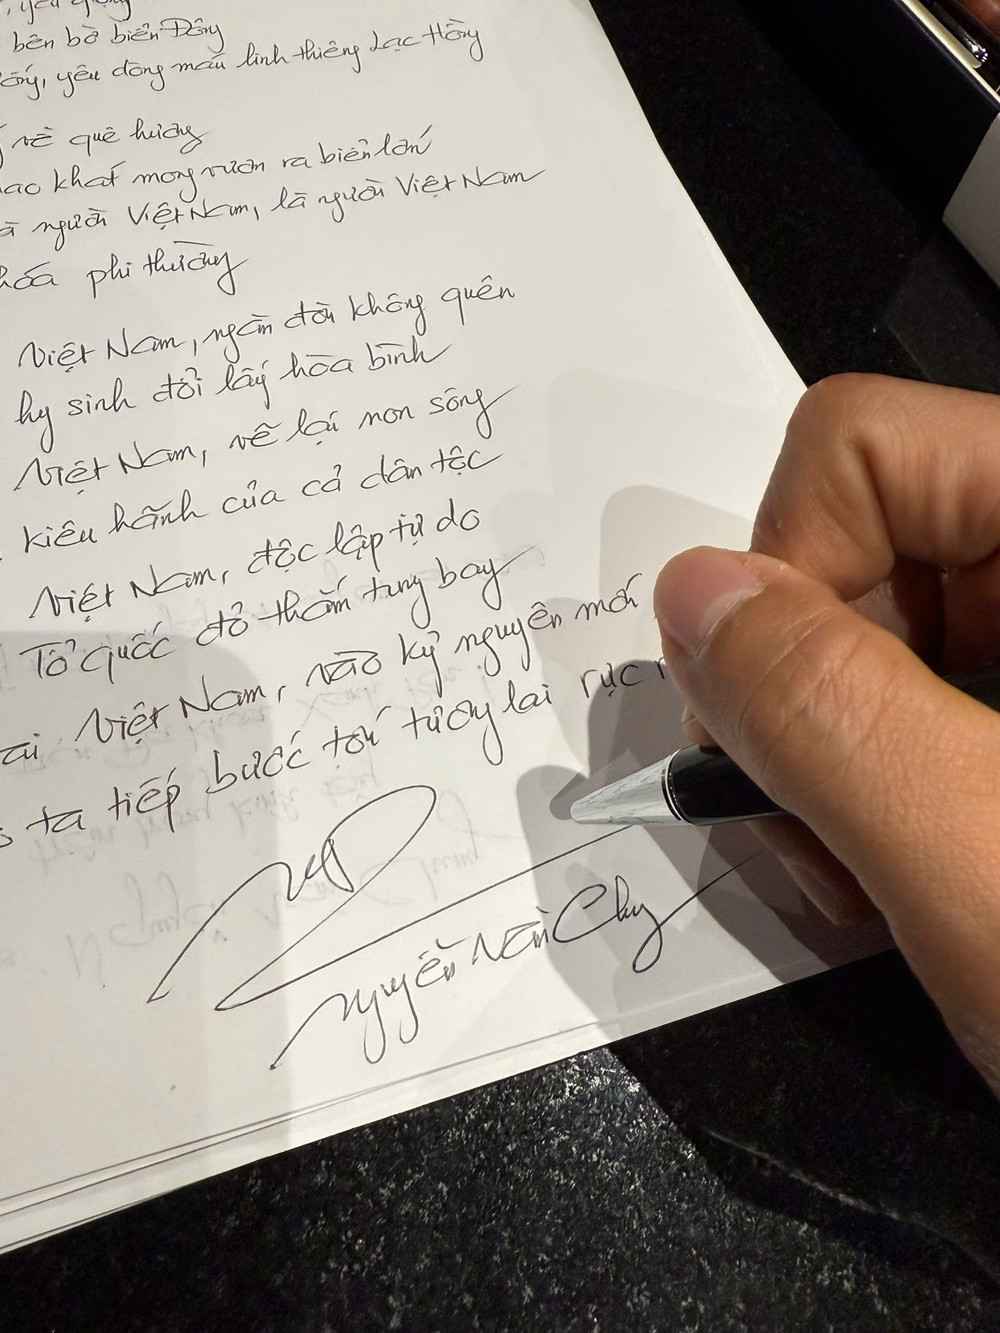 bên bờ biển Đông
yêu dòng máu linh thiêng Lạc Hồng
về quê hương
khát mong vươn ra biển lớn
người Việt Nam, là người Việt Nam
phi thường
Việt Nam, ngàn đời không quên
hy sinh đổi lấy hòa bình
Việt Nam, vẽ lại non sông
kiêu hãnh của cả dân tộc
Việt Nam, độc lập tự do
Tổ quốc đỏ thắm tung bay
Việt Nam, vào kỷ nguyên mới
ta tiếp bước tới tương lai rực
Nguyễn Văn Chung